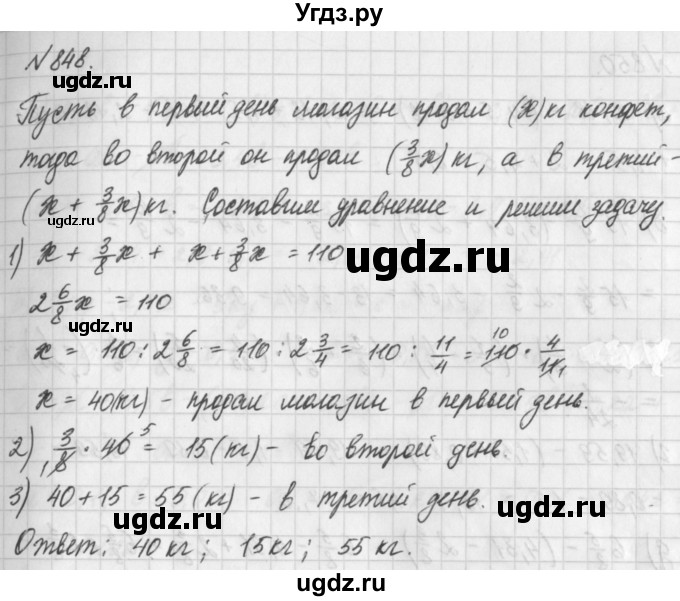 Угдз.ру
N848.
Пусть в первый день магазин продал (x) кг конфет,
тогда во второй он продал (3/8 x) кг, а в третий -
(x + 3/8 x) кг. Составим уравнение и решим задачу.
1) x + 3/8 x + x + 3/8 x = 110
2 6/8 x = 110
x = 110 : 2 6/8 = 110 : 2 3/4 = 110 : 11/4 = 110 10 · 4/11 1
x = 40(кг) - продал магазин в первый день.
2) 3/8 1 · 40 5 = 15 (кг) - во второй день.
3) 40 + 15 = 55 (кг) - в третий день.
Ответ: 40 кг; 15 кг; 55 кг.
ugdz.ru
ugdz.ru
ugdz.ru
ugdz.ru
ugdz.ru
ugdz.ru
ugdz.ru
ugdz.ru
ugdz.ru